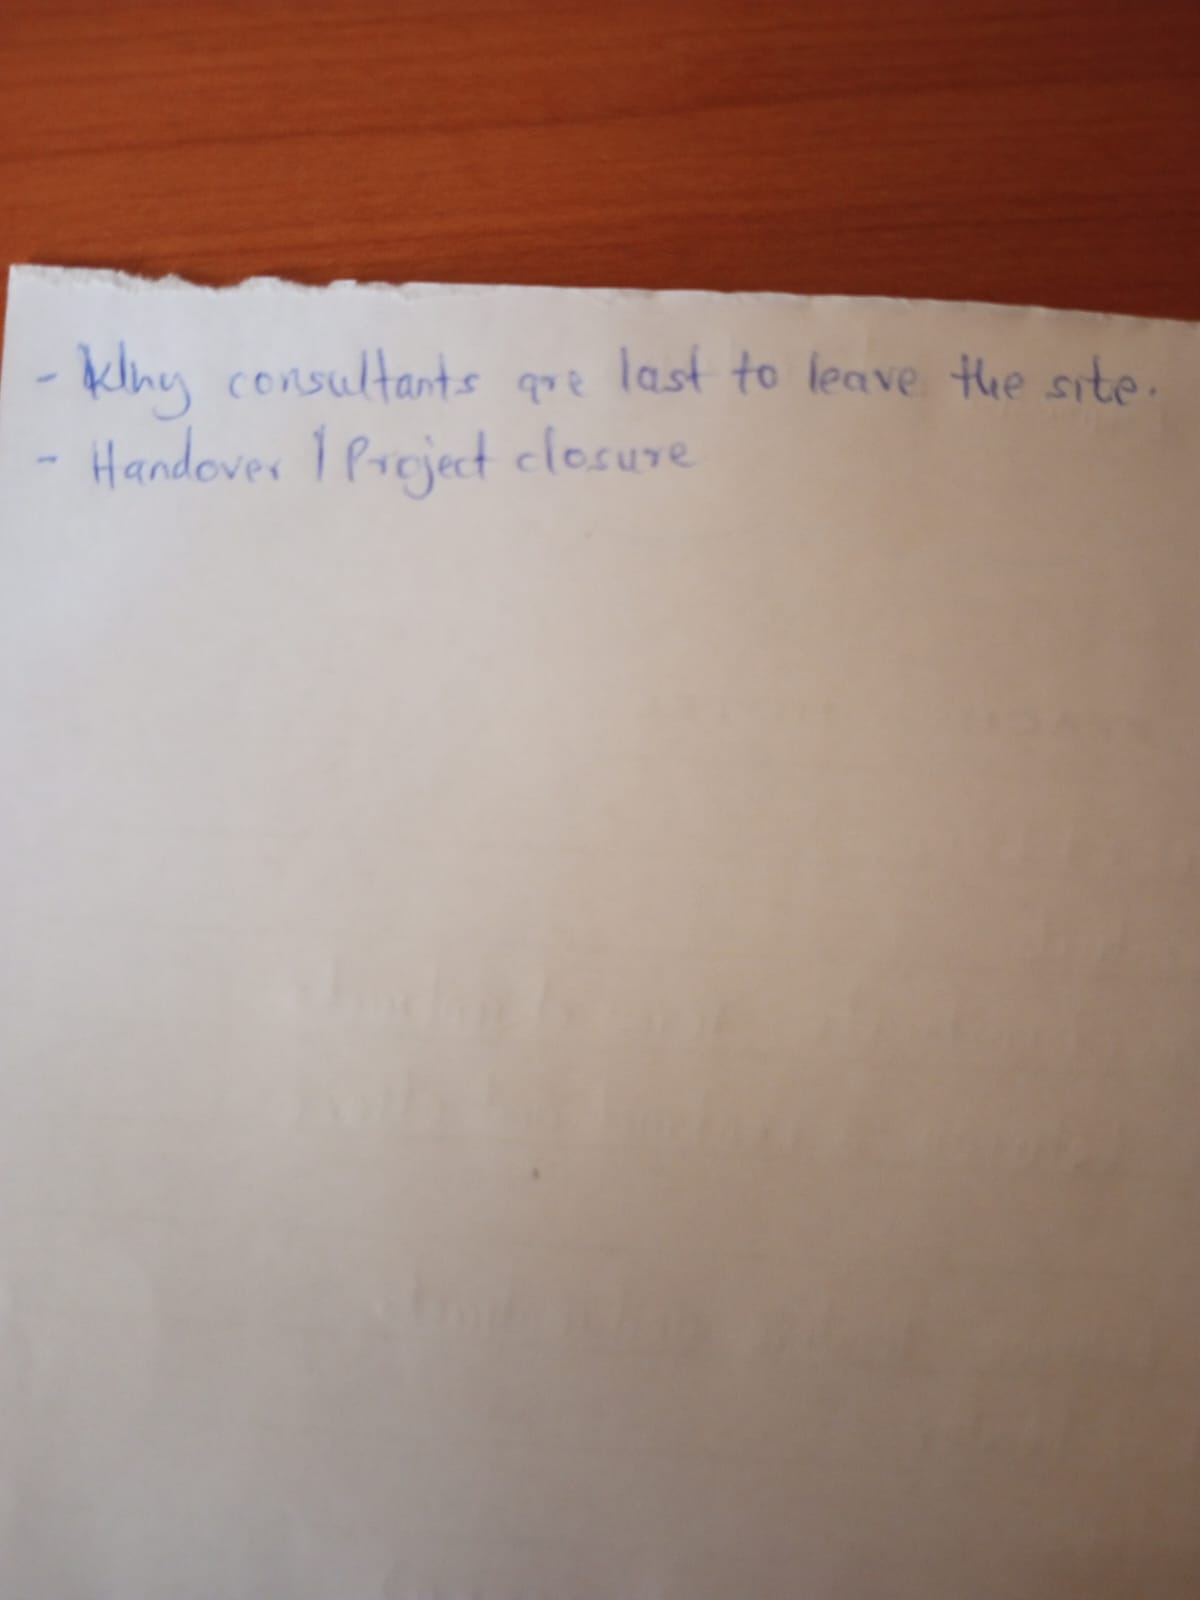 - Why consultants are last to leave the site.
- Handover / Project closure